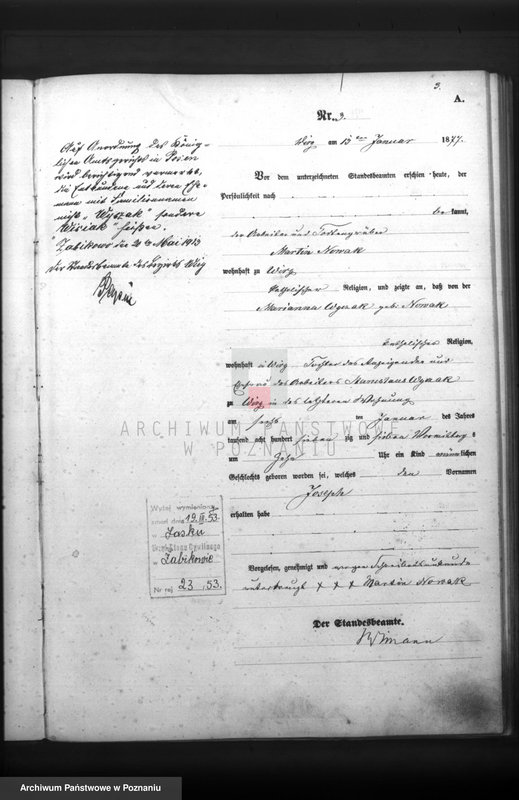 3.
A.
Nr. 3.
Wiry am 13ten Januar 1877.
Vor dem unterzeichneten Standesbeamten erschien heute, der
Persönlichkeit nach
be kannt,
der Arbeiter und Todtengräber
Martin Nowak
wohnhaft zu Wiry
katholischer Religion, und zeigte an, daß von der
Marianna Wyzak geb. Nowak
katholischer Religion,
wohnhaft in Wiry Tochter des Anzeigenden und
Ehefrau des Arbeiters Stanislaus Wyzak
zu Wiry in des letzteren Wohnung
am sechs ten Januar des Jahres
tausend acht hundert sieben zig und sieben Vormittags
um Zehn Uhr ein Kind männlichen
Geschlechts geboren worden sei, welches den Vornamen
Joseph
erhalten habe
Vorgelesen, genehmigt und wegen Schreibensunkunde
unterkreuzt + + + Martin Nowak
Der Standesbeamte.
Auf Anordnung des König-
lichen Amtsgerichts in Posen
wird berichtigend vermerkt,
die Entbundene und deren Ehe-
mann mit Familiennamen
nicht "Wyzak" sondern
"Wisiak" heißen.
Zabikowo den 20ten Mai 1913
Der Standesbeamte des Bezirks Wiry
Wyżej wymieniony
zmarł dnia 19.III.53
w Lasku
Urząd Stanu Cywilnego
Żabikowie
Nr rej 23/53.
ARCHIWUM PAŃSTWOWE
W POZNANIU
Archiwum Państwowe w Poznaniu